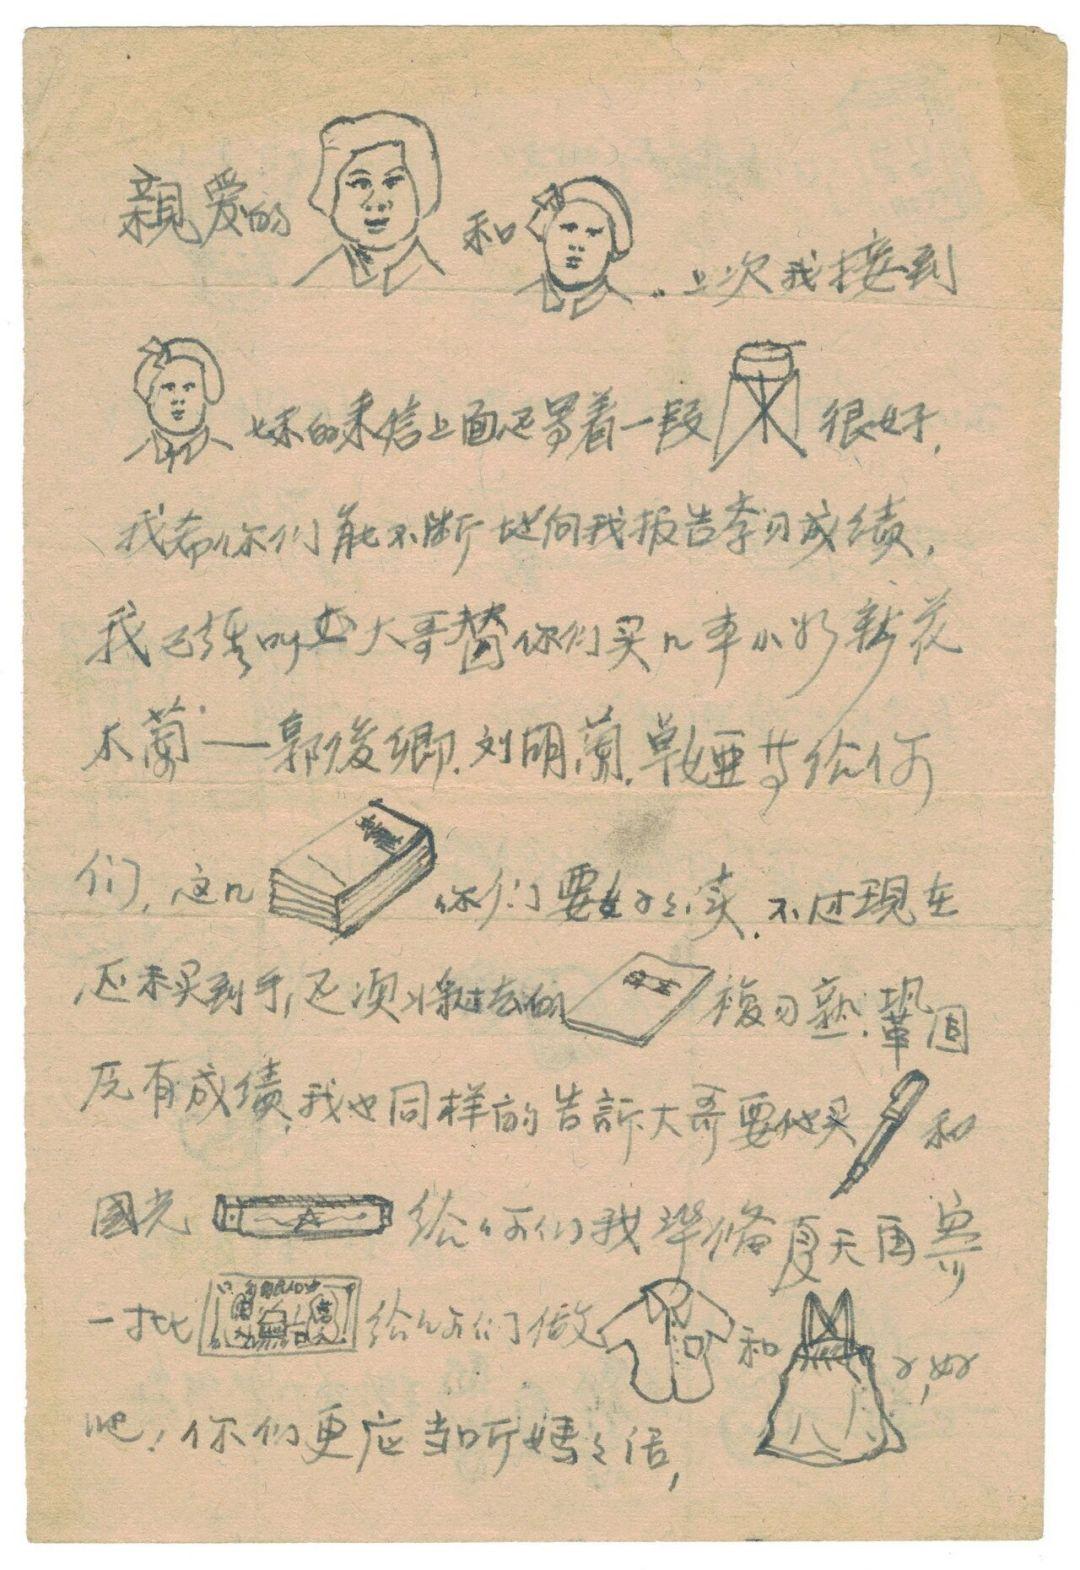 親爱的 和 ..上次我接到
妹的来信上面还写着一段 很好,
我希你们能不断地向我报告学习成绩,
我已经叫 大哥替你们买几本小 新花
木蘭——郭俊卿.刘胡蘭.卓娅等给你
们,这几 你们要好好读.不过現在
还未买到手,还须将过去的 複习熟.鞏固
既有成绩,我也同样的告訴大哥要他买 和
國光 给你们我準俻夏天再寄
一批 给你们做 和 好
吧!你们更应当听媽媽话,